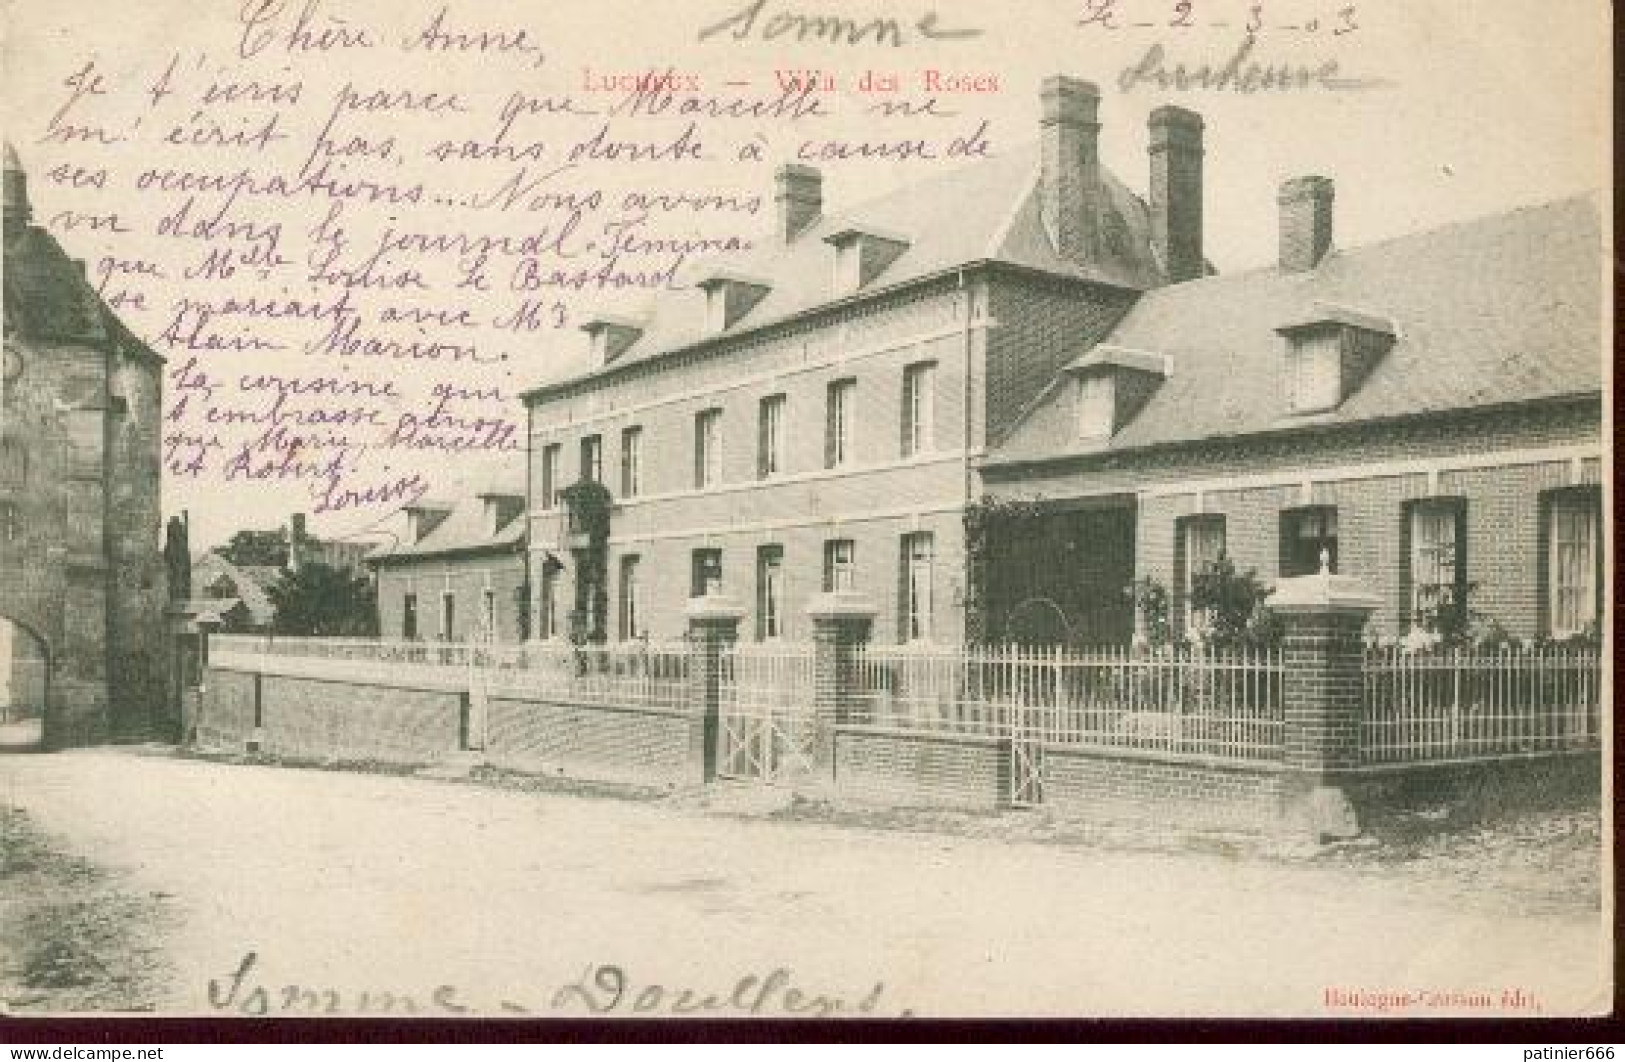 Somme
Le - 2 - 3 - 03
Lucheux
Lucheux — Villa des Roses
Chère Anne,
Je t'écris parce que Marcelle ne
m'écrit pas, sans doute à cause de
ses occupations... Nous avons
vu dans le journal "Femina"
que Mlle Louise Le Bastard
se mariait avec Mr
Alain Marion.
La cousine qui
t'embrasse ainsi
que Marie, Marcelle
et Robert.
Louise
Somme - Doullens.
Boulogne-Cuisson édit.
patinier666